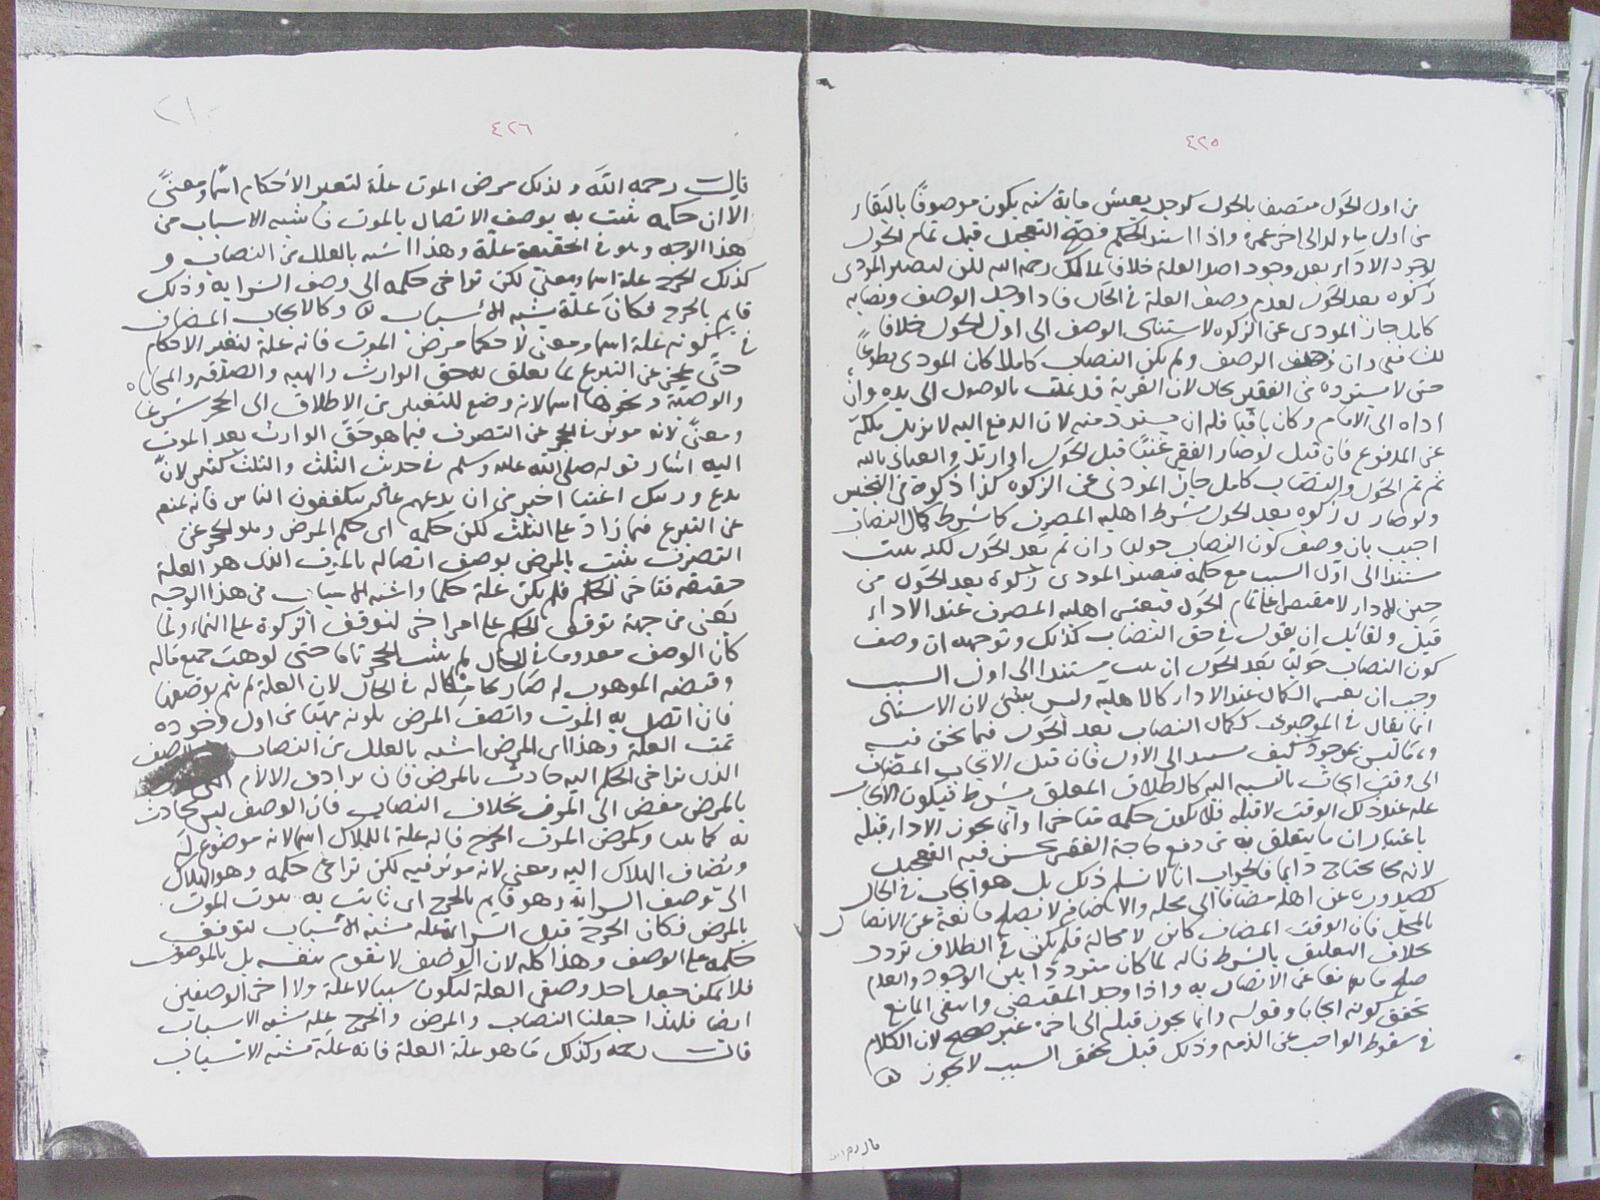 ٤٢٥
من اول الحول متصف بالحول كرجل يعيش ماية سنة يكون موصوفا بالبقاء
من اول ما ولد الى اخر عمره واذا استند الحكم فصح التعجيل قبل تمام الحول
لوجود الاداء بعد وجود اصل العلة خلافا لمالك رحمه الله لكن ليصير المودى
زكوه بعد الحول لعدم وصف العلة في الحال فاذا وجد الوصف ونصابه
كامل جاز المودى عن الزكوه لاستناد الوصف الى اول الحول خلافا
للشافعى وان الوصف ولم يكن النصاب كاملا كان المودى تطوعا
حتى لا يسترده من الفقير بحال لان القربة قد تمت بالوصول الى يده وان
اداه الى الامام وكان باقيا فله ان يسترد منه لان الدفع اليه لا يزيل ملكه
عن المدفوع فان قيل لو صار الفقير غنيا قبل الحول او ارتد والعياذ بالله
ثم تم الحول والنصاب كامل جاز المودى عن الزكوه كذا ذكره في
ولو صار زكوه بعد الحول شرط اهلية المصرف كما شرط كمال النصاب
اجيب بان وصف كون النصاب حوليا وان تم بعد الحول لكنه يثبت
مستندا الى اول السبب مع حكمه فيصير المودى زكوة بعد الحول من
حين الادا لا مقتصرا على تمام الحول فيعتبر اهلية المصرف عند الاداء
قيل ولقائل ان يقول في حق النصاب كذلك وتوجيهه ان وصف
كون النصاب حوليا بعد الحول ان يثبت مستندا الى اول السبب
وجب ان يعتبر الكمال عند الادا كالاهلية وليس بشئ لان الاستناد
انما يقال في الموجود ككمال النصاب بعد الحول فيما نحن فيه
وما ليس بموجود كيف يسند الى الاول فان قيل الايجاب المضاف
الى وقت ايجاب بالنسبة اليه كالطلاق المعلق بشرط فيكون الايجاب
علة عند ذلك الوقت لا قبله فلا يكون حكمه متاخرا وانما يجوز الادا قبله
باعتبار ان ما يتعلق به من دفع حاجة الفقير يحسن فيه التعجيل
لانه مما يحتاج دائما فالجواب انا لا نسلم ذلك بل هو ايجاب في الحال
لصدوره عن اهله مضافا الى محله والاضافة لا تصلح مانعة عن الاتصال
بالمحل فان الوقت المضاف كائن لا محالة فلم يكن في الطلاق تردد
بخلاف التعليق بالشرط فانه لما كان مترددا بين الوجود والعدم
صلح مانعا عن الاتصال به واذا وجد المقتضى وانتفى المانع
تحقق كونه ايجابا وقوله وانما يجوز قبله الى اخره غير صحيح لان الكلام
في سقوط الواجب عن الذمه وذلك قبل تحقق السبب لا يجوز
٤٢٦
قال رحمه الله وكذلك مرض الموت علة لتغير الاحكام اسما ومعنى
الا ان حكمه يثبت به بوصف الاتصال بالموت فاشبه الاسباب من
هذا الوجه وهو في الحقيقة علة وهذا اشبه بالعلل من النصاب و
كذلك الجرح علة اسما ومعنى لكن تراخى حكمه الى وصف السراية وذلك
قايم بالجرح فكان علة يشبه الاسباب وكالايجاب المضاف
في كونه علة اسما ومعنى لا حكما مرض الموت فانه علة لتغير الاحكام
حتى يحجر عن التبرع بما يتعلق به حق الوارث والهبه والصدقه والمحاباه
والوصية ونحوها اسما لانه وضع للتغيير من الاطلاق الى الحجر شرعا
ومعنى لانه موثر في الحجر عن التصرف فيما هو حق الوارث بعد الموت
اليه اشار قوله صلى الله عليه وسلم في حديث الثلث والثلث كثير لان
تدع ورثتك اغنيا خير من ان تدعهم عالة يتكففون الناس فانه منع
عن التبرع فيما زاد على الثلث لكن حكمه اى حكم المرض وهو الحجر عن
التصرف يثبت بالمرض بوصف اتصاله بالموت الذى هو العلة
حقيقة فتاخر الحكم فلم يكن علة حكما واشبه الاسباب من هذا الوجه
يعنى من جهة توقف الحكم على امر اخر لتوقف الزكوة على النماء ولما
كان الوصف معدوما في الحال لم يثبت الحجر تاما حتى لو وهب جميع ماله
وقبضه الموهوب له صار ملكا له في الحال لان العلة لم تتم بوصفها
فان اتصل به الموت واتصف المرض بكونه مميتا من اول وجوده
تمت العلة وهذا اى المرض اشبه بالعلل من النصاب الوصف
الذى تراخى الحكم اليه حادث بالمرض فان ترادف الالام
بالمرض مفض الى الموت بخلاف النصاب فان الوصف ليس بحادث
به كما بينا وكمرض الموت الجرح فانه علة بالهلاك اسما لانه موضوع له
ويضاف الهلاك اليه ومعنى لانه موثر فيه لكن تراخى حكمه وهو الهلاك
الى وصف السراية وهو قايم بالجرح اى ثابت به ثبوت الموت
بالمرض فكان الجرح قبل السراية علة مشبه الاسباب لتوقف
حكمه على الوصف وهذا كله لان الوصف لا يقوم بنفسه بل بالموصوف
فلا يمكن جعل احد وصفى العلة ليكون سببا لا علة ولا اخر الوصفين
ايضا فلهذا جعلنا النصاب والمرض والجرح علة تشبه الاسباب
قال رحمه وكذلك ما هو علة العلة فانه علة تشبه الاسباب